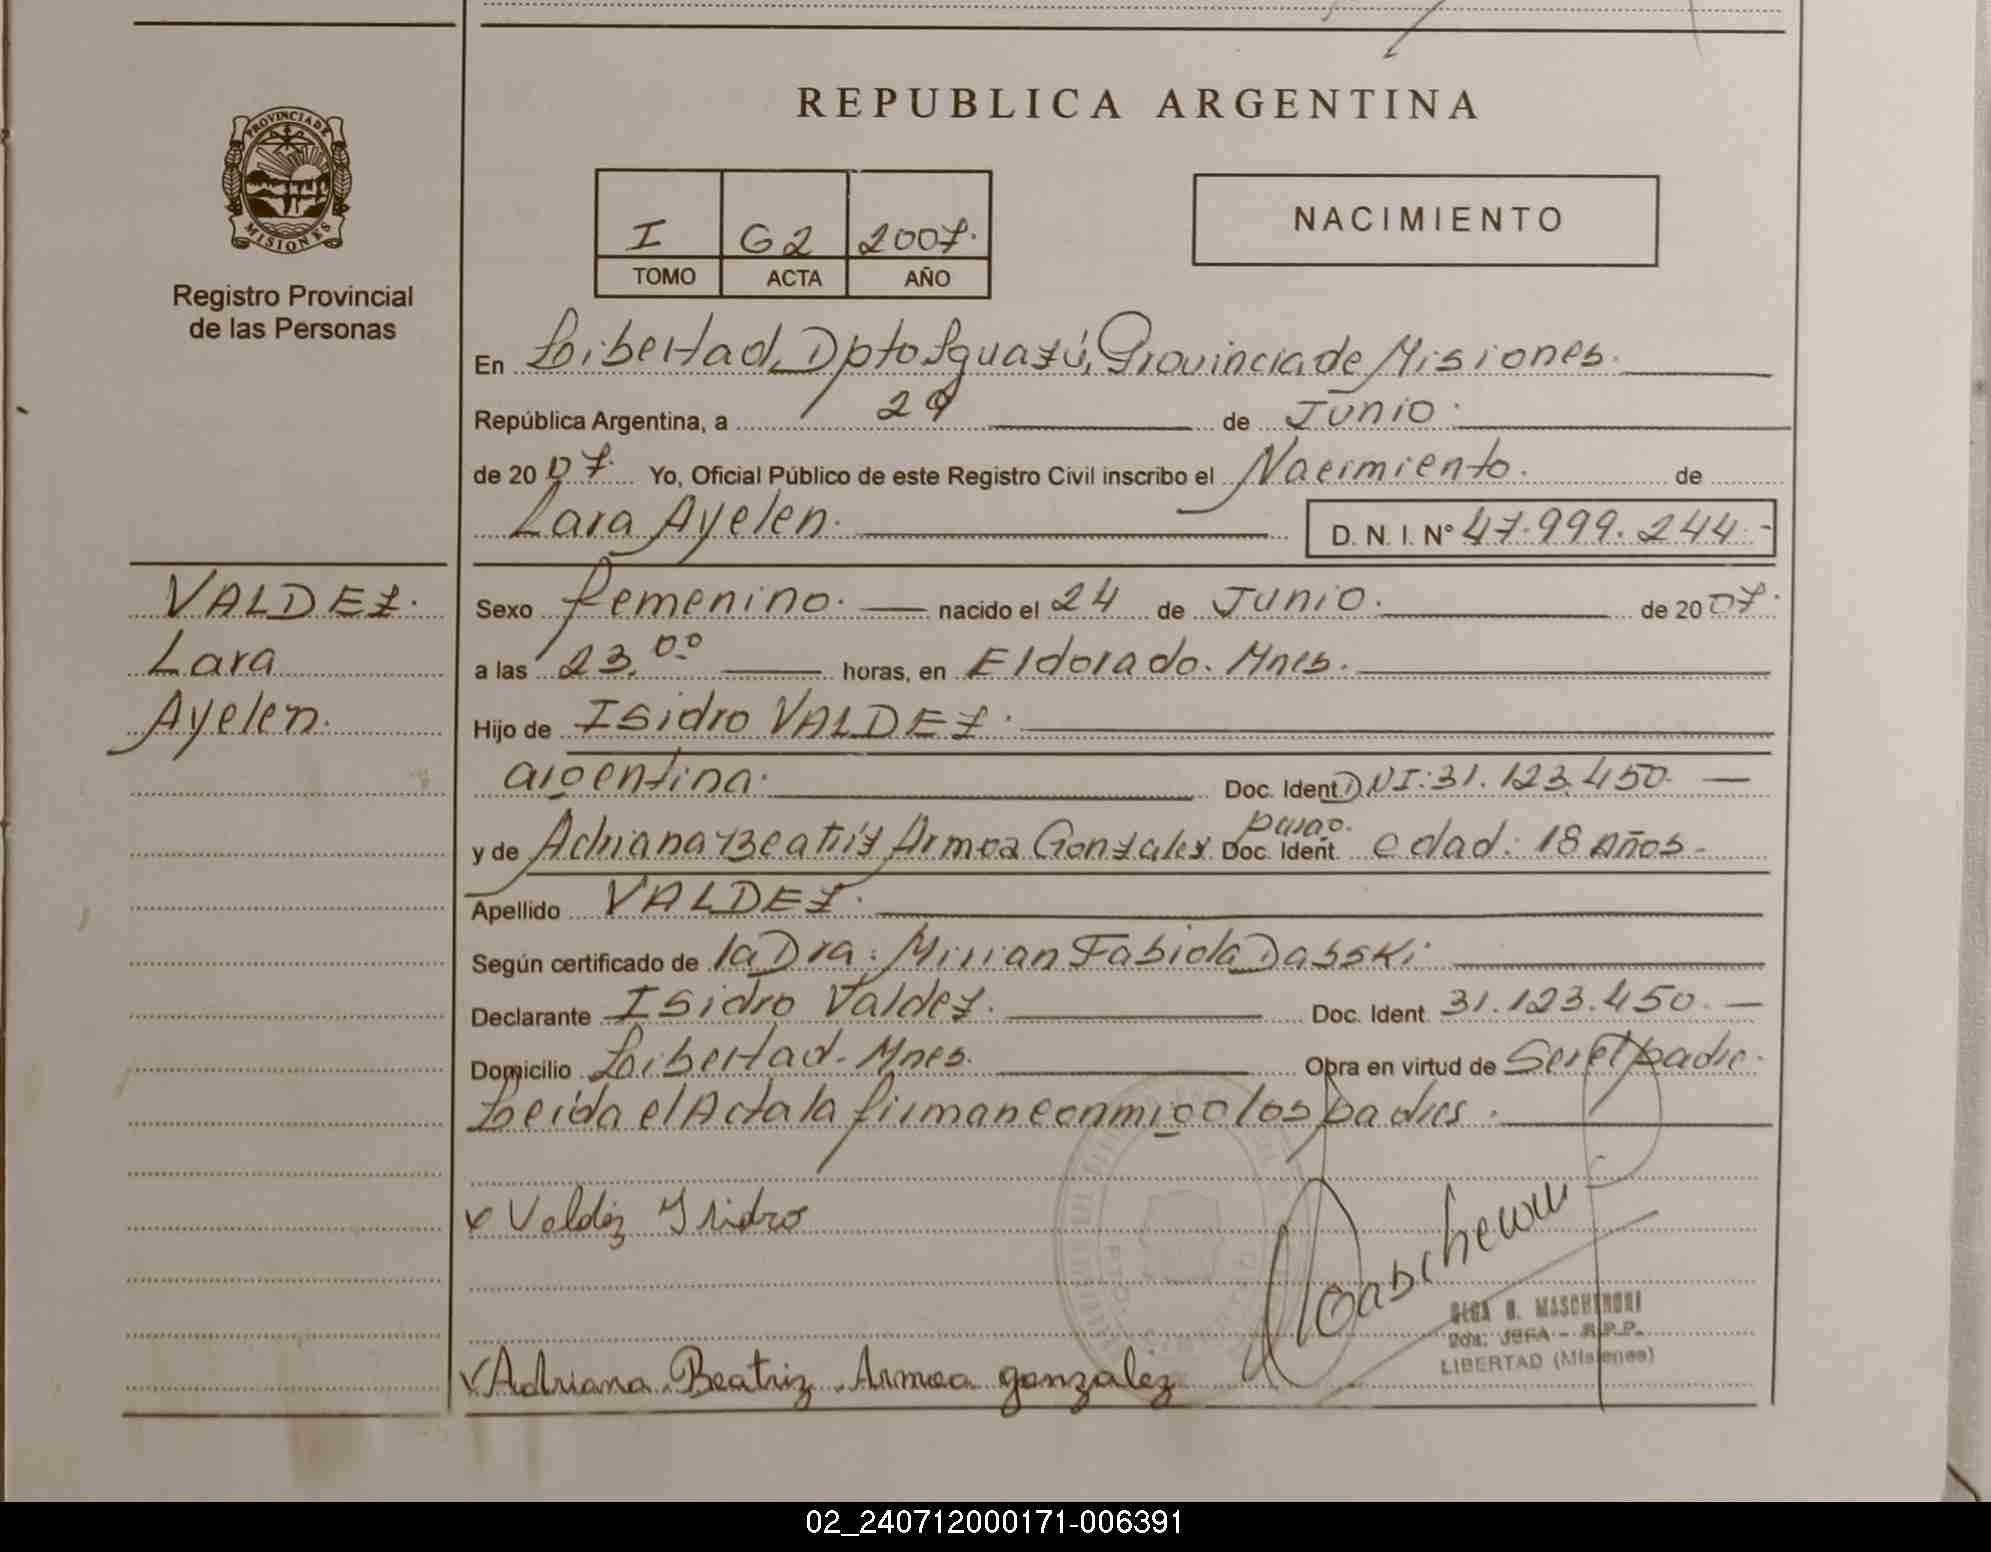 REPUBLICA ARGENTINA
PROVINCIA DE
MISIONES
Registro Provincial
de las Personas
I 62 2007.
TOMO ACTA AÑO
NACIMIENTO
En Libertad, Dpto Iguazú, Provincia de Misiones.
República Argentina, a 29 de Junio.
de 2007. Yo, Oficial Público de este Registro Civil inscribo el Nacimiento. de
Lara Ayelen. D. N. I. Nº 47.999.244.-
VALDEZ.
Lara
Ayelen.
Sexo femenino. nacido el 24 de Junio. de 2007.
a las 23.00 horas, en Eldorado. Mnes.
Hijo de Isidro VALDEZ.
argentina. Doc. Ident. DNI: 31.123.450. —
y de Adriana Beatriz Armoa Gonzalez. Doc. Ident. edad: 18 Años.-
Apellido VALDEZ.
Según certificado de la Dra: Mirian Fabiola Dasski
Declarante Isidro Valdez. Doc. Ident. 31.123.450. —
Domicilio Libertad. Mnes. Obra en virtud de Ser el padre.
Leída el Acta la firman conmigo los padres.
x Valdez Isidro
OLGA MASCHERONI
JEFA - R.P.P.
LIBERTAD (Misiones)
x Adriana Beatriz Armoa gonzalez
02_240712000171-006391